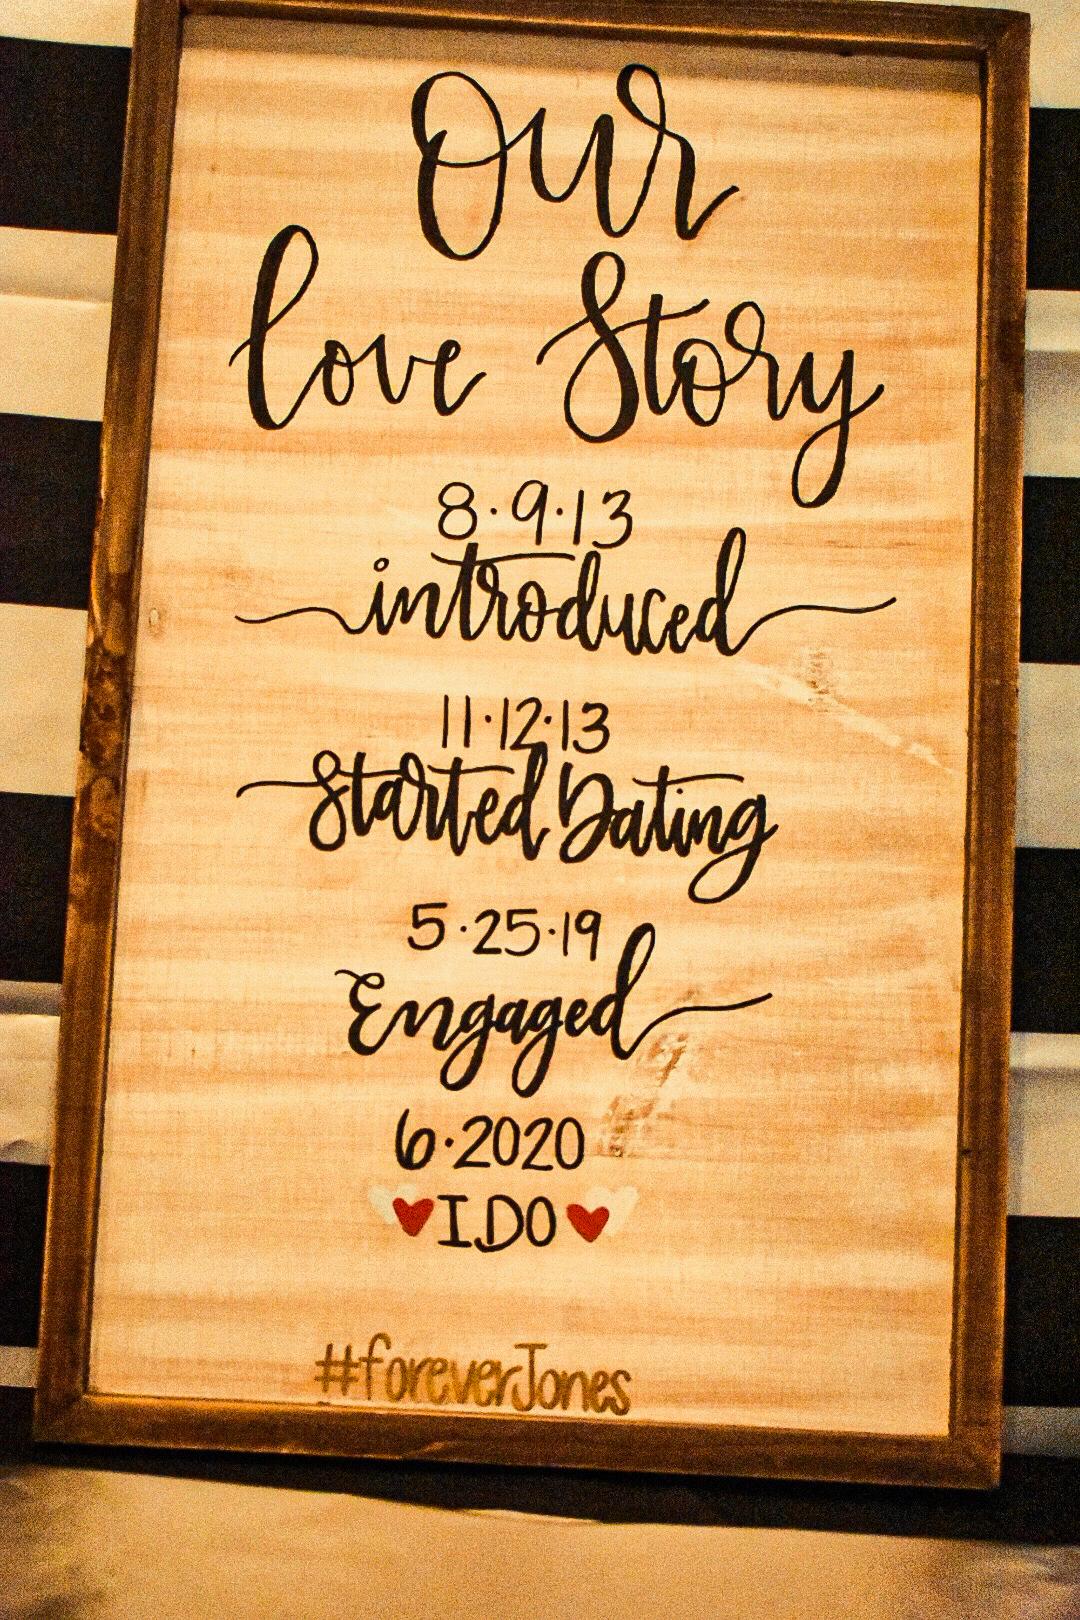 Our
love Story
8·9·13
introduced
11·12·13
Started Dating
5·25·19
Engaged
6·2020
I DO
#foreverJones